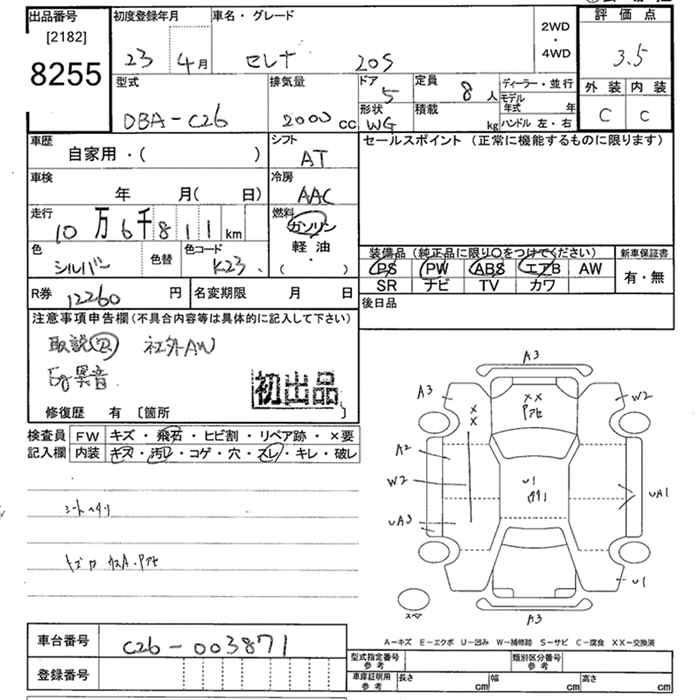 出品番号
[2182]
8255
初度登録年月
23 4月
車名・グレード
セレナ 20S
2WD
・
4WD
評価点
3.5
外装 内装
C C
型式
DBA-C26
排気量
2000 cc
ドア
5
形状
WG
定員
8人
積載
kg
ディーラー・並行
モデル年式 年
ハンドル 左・右
車歴
自家用・( )
シフト
AT
セールスポイント (正常に機能するものに限ります)
車検
年 月( 日)
冷房
AAC
走行
10万6千811km
燃料
ガソリン
軽油
( ・ )
色
シルバー
色替
色コード
K23
装備品 (純正品に限り○をつけてください)
PS PW ABS エアB AW
SR ナビ TV カワ
新車保証書
有・無
R券 12260円
名変期限 月 日
後日品
注意事項申告欄 (不具合内容等は具体的に記入して下さい)
取説 社外AW
Eg異音
初出品
修復歴 有 [箇所 ]
検査員
記入欄
FW キズ・飛石・ヒビ割・リペア跡・×要
内装 キズ・汚レ・コゲ・穴・スレ・キレ・破レ
シートヘタリ
A3
A3
XX
W2
XX
A2
W2
U1
UA1
UA3
U1
A3
スペア
A-キズ E-エクボ U-凹み W-補修跡 S-サビ C-腐食 XX-交換済
車台番号
C26-003871
登録番号
型式指定番号
参考
類別区分番号
参考
車庫証明用
参考
長さ cm 幅 cm 高さ cm